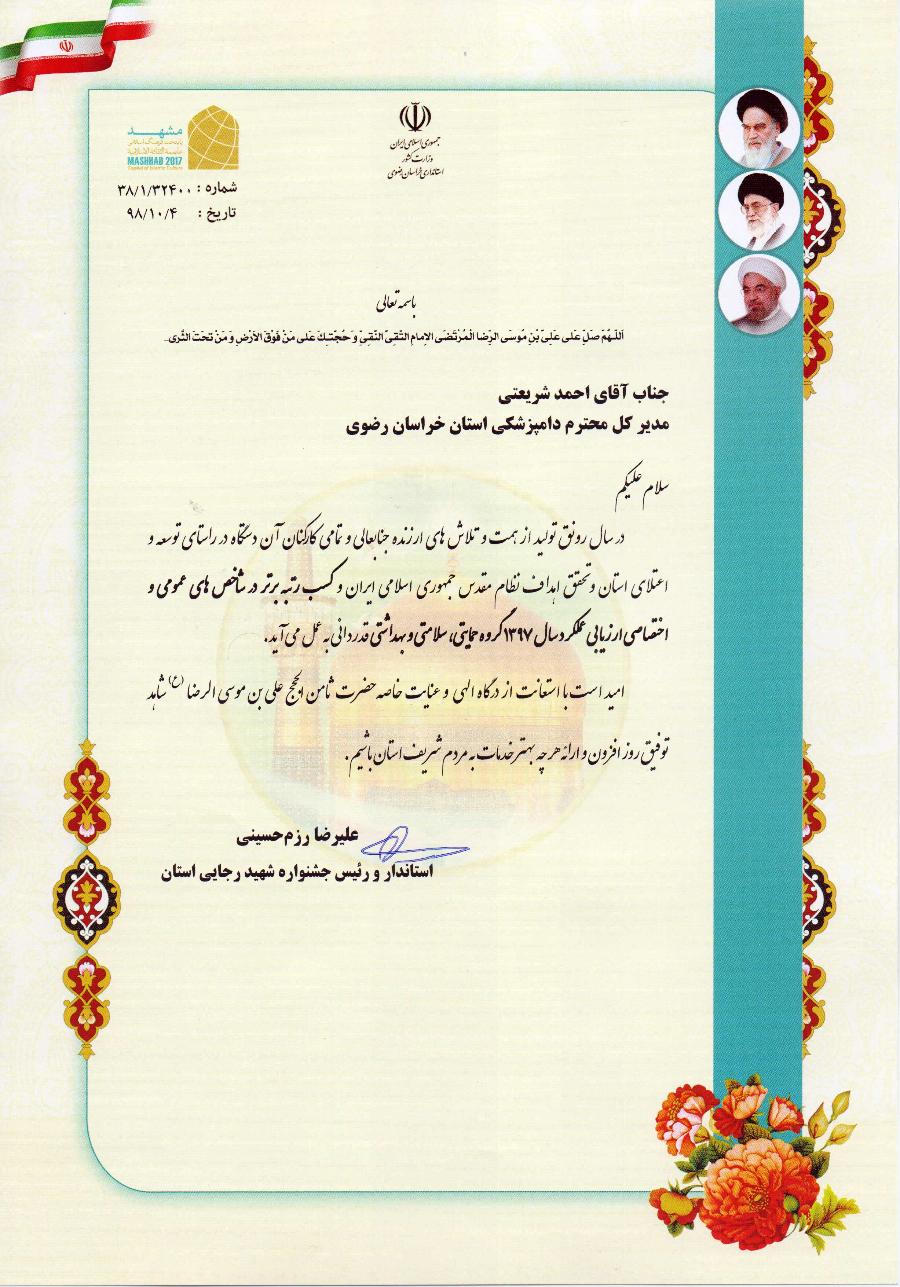 جمهوری اسلامی ایران
وزارت کشور
استانداری خراسان رضوی
مشهد
پایتخت فرهنگ اسلامی
MASHHAD 2017
Capital of Islamic Culture
شماره : ۳۸/۱/۳۲۴۰۰
تاریخ : ۹۸/۱۰/۴
باسمه تعالی
اَللّهُمَّ صَلِّ عَلی عَلِیِّ بْنِ مُوسَی الرِّضَا الْمُرْتَضَی الاِمامِ التَّقِیِّ النَّقِیِّ وَ حُجَّتِکَ عَلی مَنْ فَوْقَ الاَرْضِ وَ مَنْ تَحْتَ الثَّری..
جناب آقای احمد شریعتی
مدیر کل محترم دامپزشکی استان خراسان رضوی
سلام علیکم
در سال رونق تولید از همت و تلاش های ارزنده جنابعالی و تمامی کارکنان آن دستگاه در راستای توسعه و
اعتلای استان و تحقق اهداف نظام مقدس جمهوری اسلامی ایران و کسب رتبه برتر در شاخص های عمومی و
اختصاصی ارزیابی عملکرد سال ۱۳۹۷ گروه حمایتی، سلامتی و بهداشتی قدردانی به عمل می آید.
امید است با استعانت از درگاه الهی و عنایت خاصه حضرت ثامن الحجج علی بن موسی الرضا (ع) شاهد
توفیق روز افزون و ارائه هر چه بهتر خدمات به مردم شریف استان باشیم.
علیرضا رزم‌حسینی
استاندار و رئیس جشنواره شهید رجایی استان